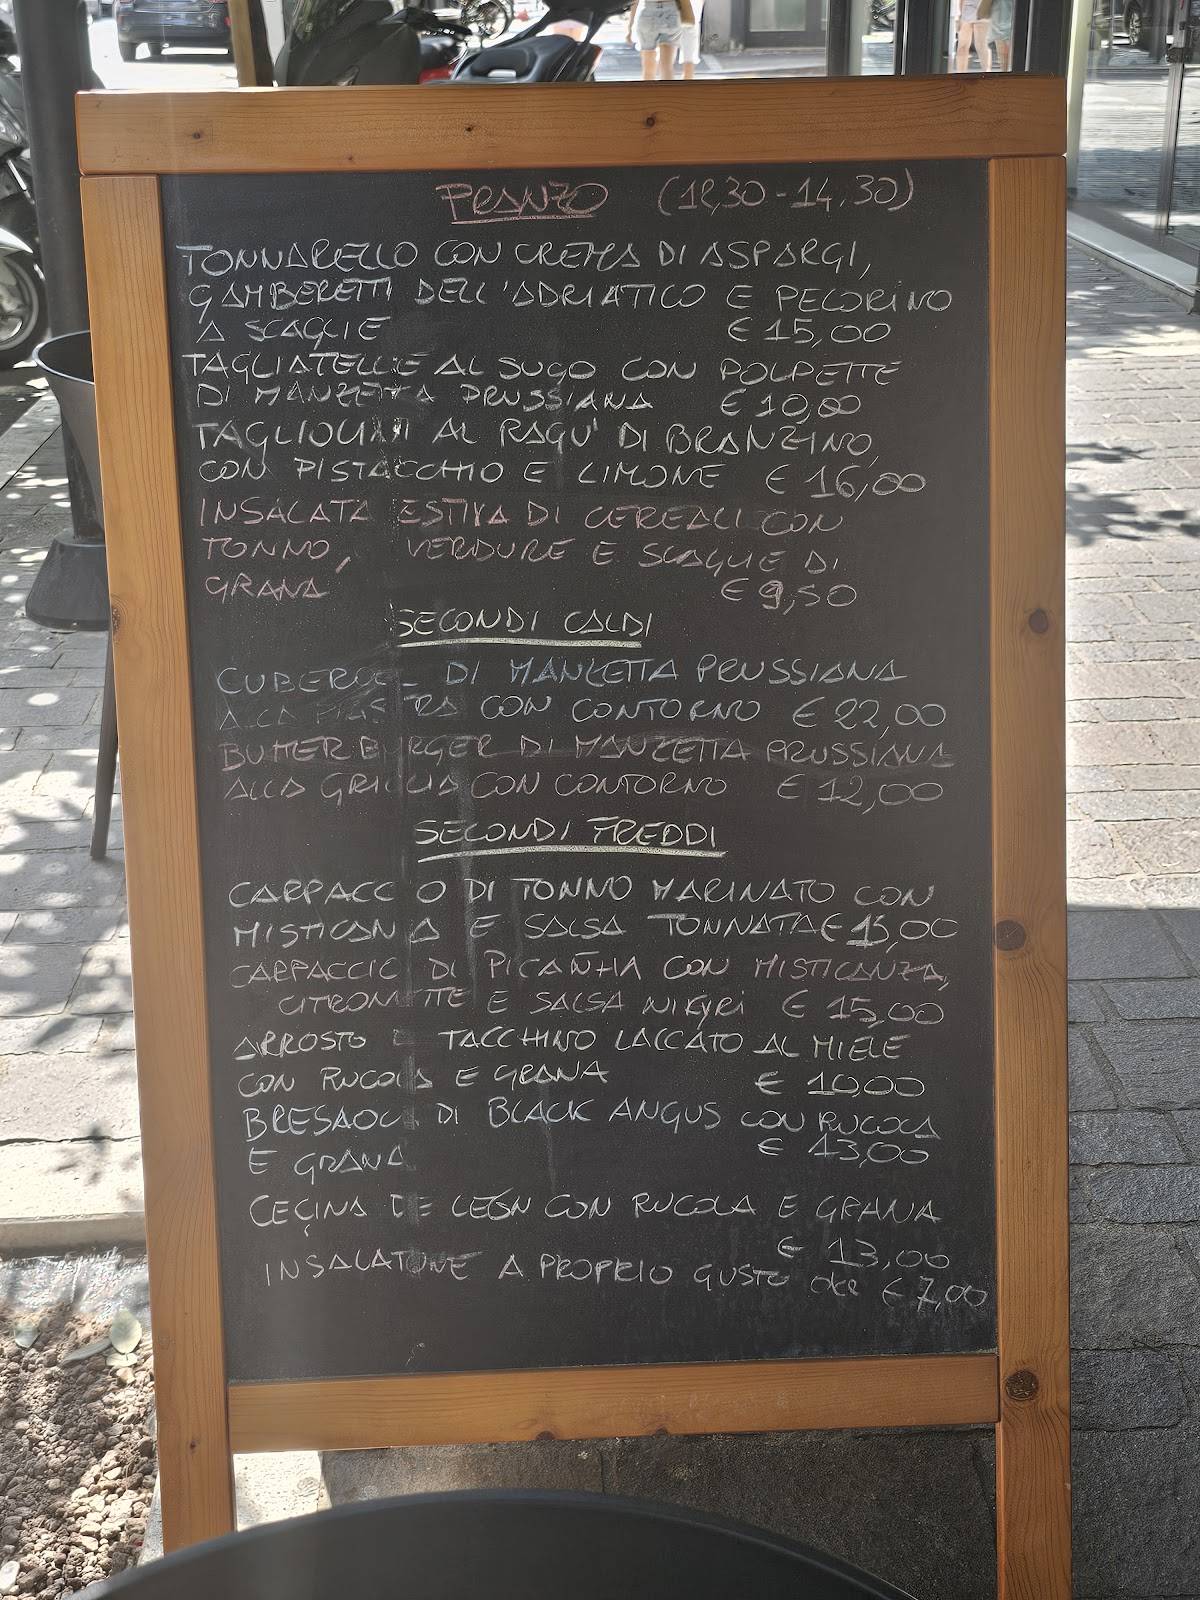 PRANZO (12,30-14,30)
TONNARELLO CON CREMA DI ASPARGI,
GAMBERETTI DELL'ADRIATICO E PECORINO
A SCAGLIE € 15,00
TAGLIATELLE AL SUGO CON POLPETTE
DI MANZETTA PRUSSIANA € 10,00
TAGLIOLINI AL RAGU' DI BRANZINO,
CON PISTACCHIO E LIMONE € 16,00
INSALATA ESTIVA DI CEREALI CON
TONNO, VERDURE E SCAGLIE DI
GRANA € 9,50
SECONDI CALDI
DI MANZETTA PRUSSIANA
ALLA PIASTRA CON CONTORNO € 22,00
BUTTER BURGER DI MANZETTA PRUSSIANA
ALLA GRIGLIA CON CONTORNO € 12,00
SECONDI FREDDI
CARPACCIO DI TONNO MARINATO CON
MISTICANZA E SALSA TONNATA € 15,00
CARPACCIO DI PICAÑHA CON MISTICANZA,
CITRONETTE E SALSA NIKYRI € 15,00
ARROSTO DI TACCHINO LACCATO AL MIELE
CON RUCOLA E GRANA € 10,00
BRESAOLA DI BLACK ANGUS CON RUCOLA
E GRANA € 13,00
CEÇINA DE LEÓN CON RUCOLA E GRANA
€ 13,00
INSALATONE A PROPRIO GUSTO € 7,00